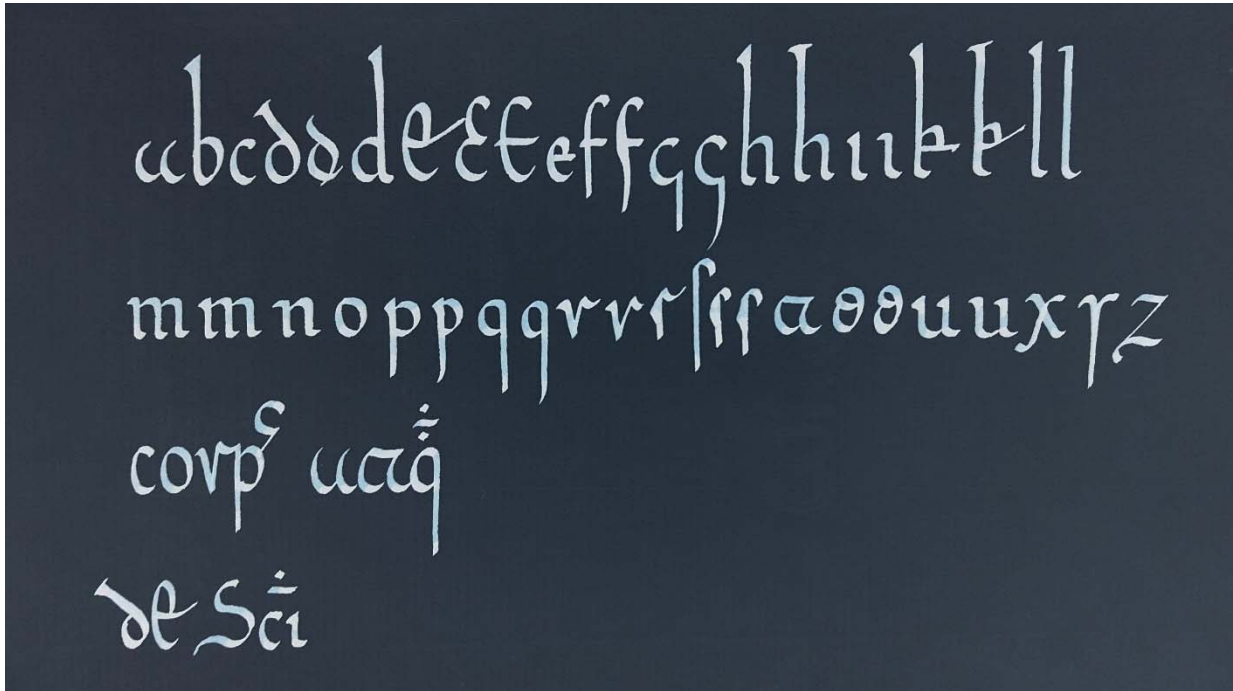 abcdddeeeeffgghhiikkll
mmnoppqqrrsſsstttuuxyz
corpꝰ atq̄̇
de Sc̄̇i